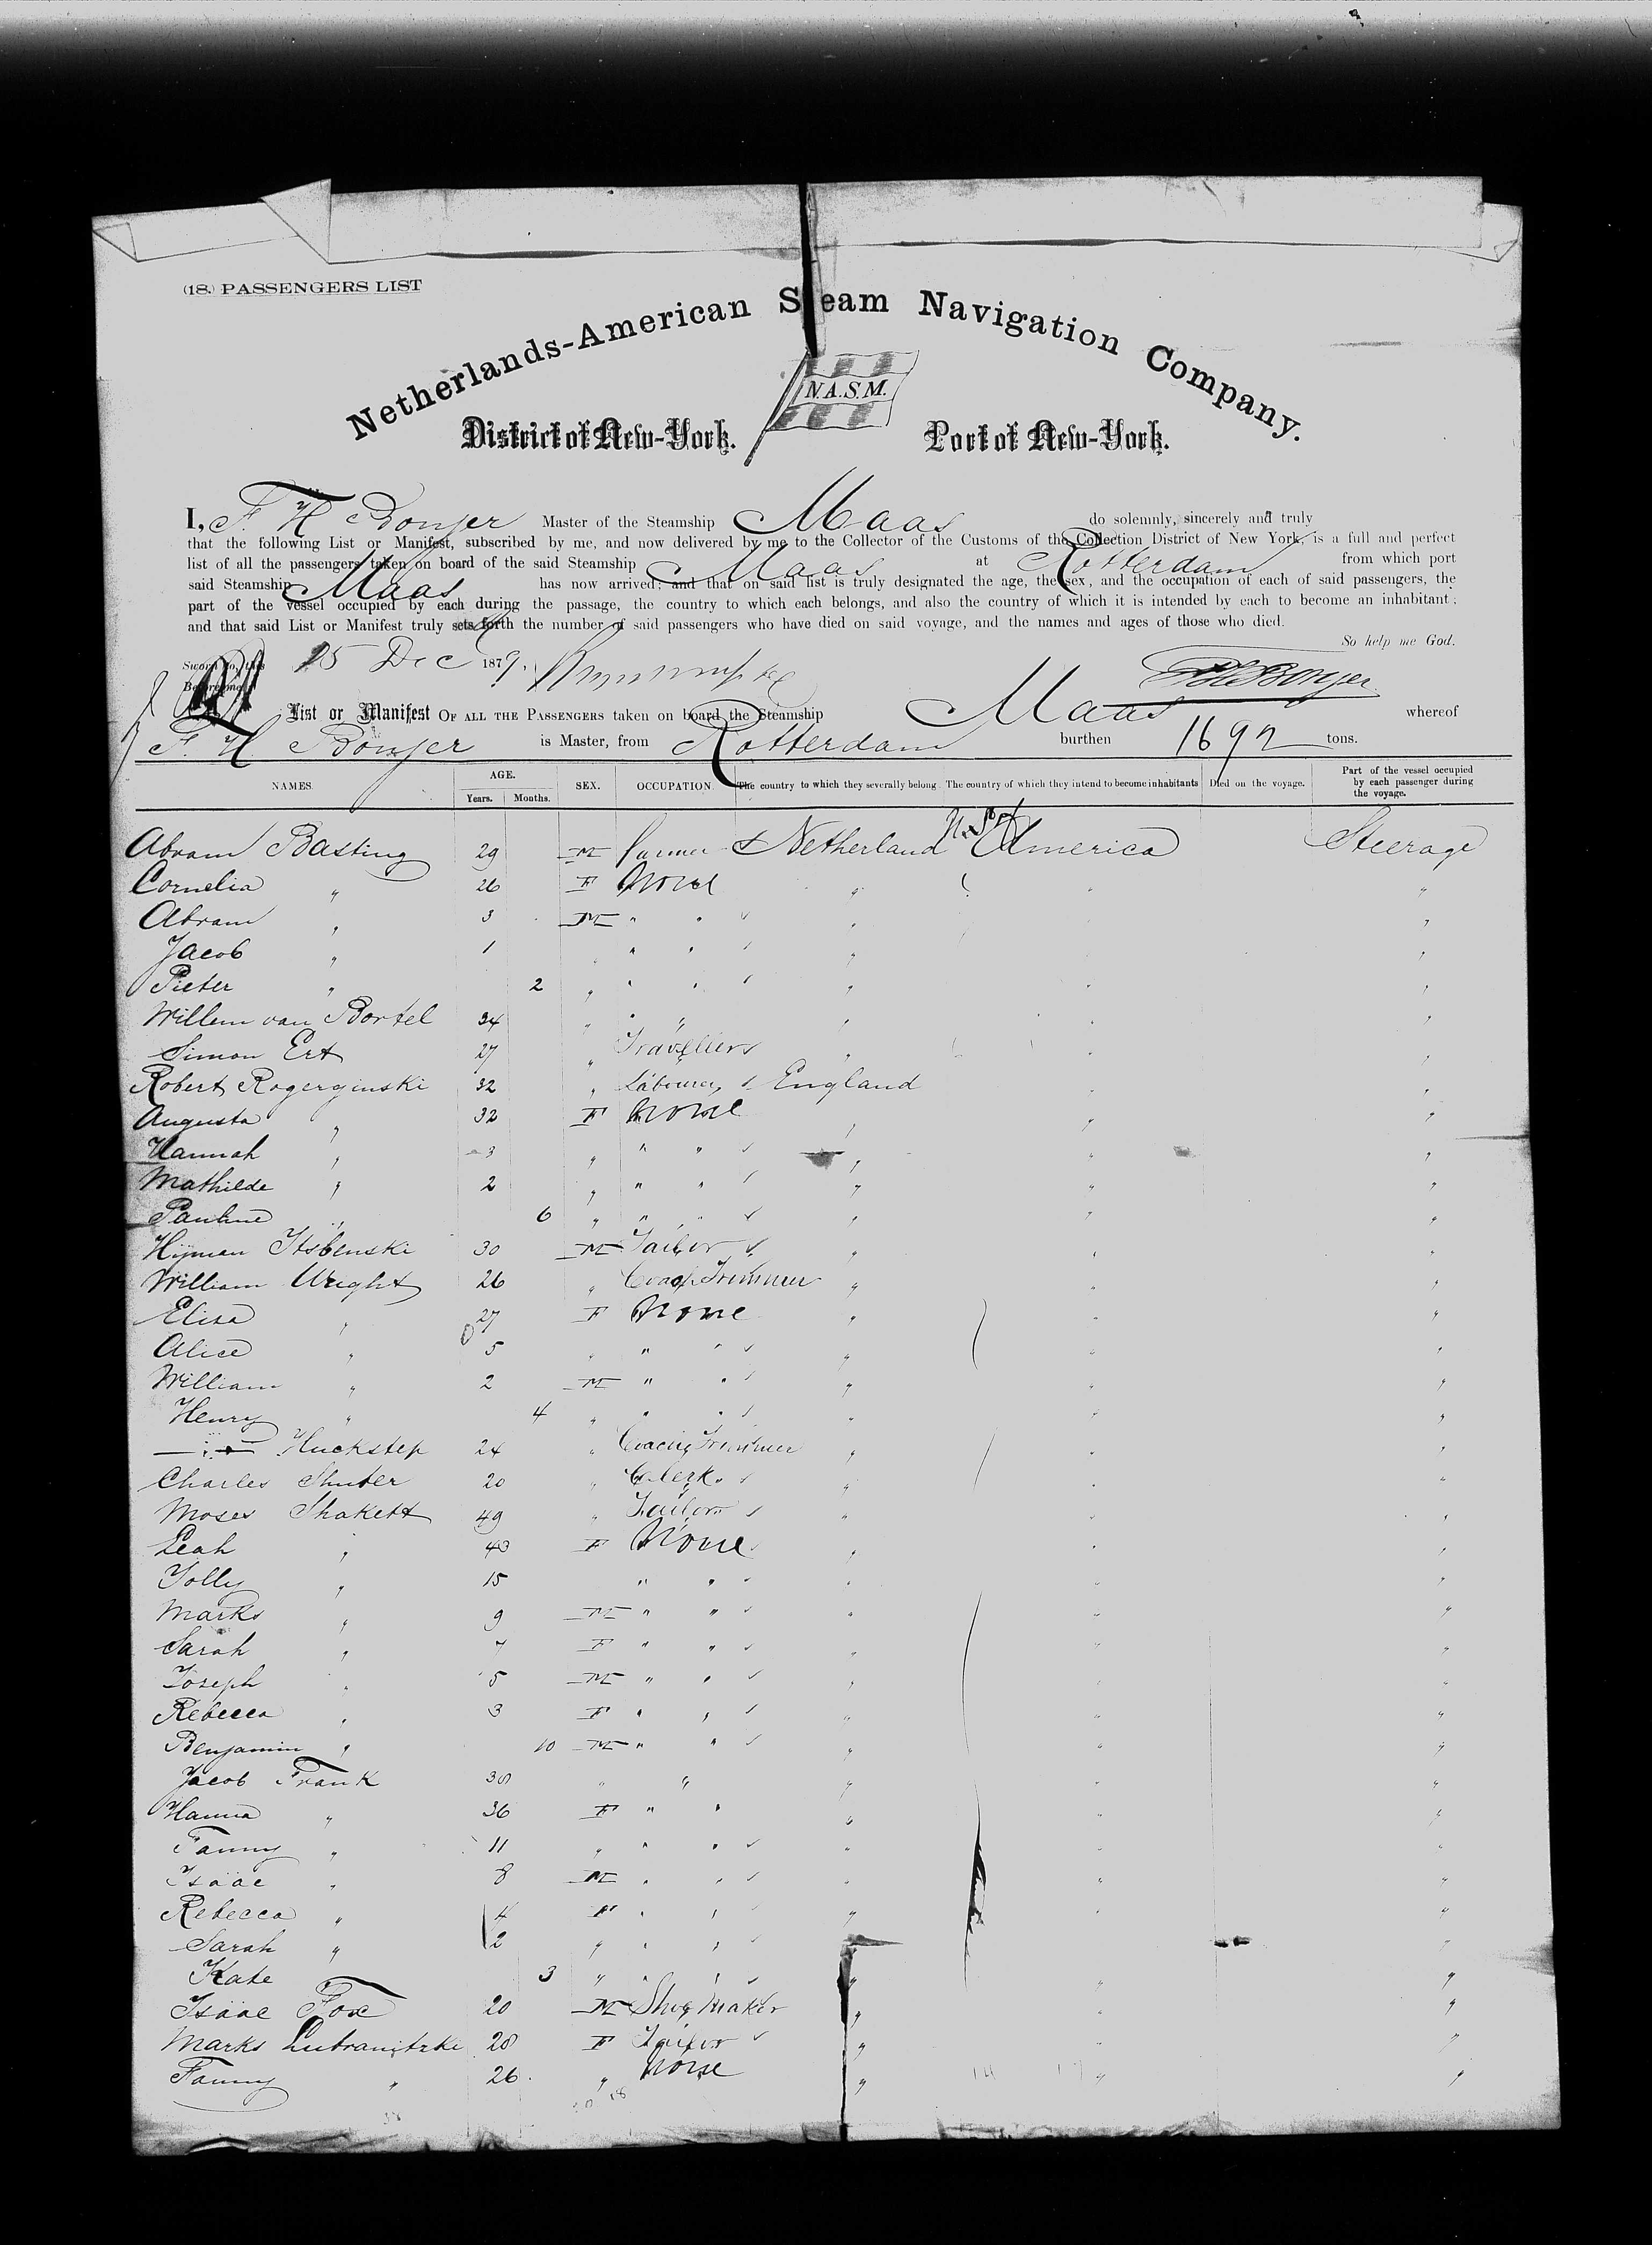 (18.) PASSENGERS LIST
Netherlands-American Steam Navigation Company.
N.A.S.M.
District of New-York. Port of New-York.
I, F. H Bonjer Master of the Steamship Maas do solemnly, sincerely and truly
that the following List or Manifest, subscribed by me, and now delivered by me to the Collector of the Customs of the Collection District of New York, is a full and perfect
list of all the passengers taken on board of the said Steamship Maas at Rotterdam from which port
said Steamship Maas has now arrived; and that on said list is truly designated the age, the sex, and the occupation of each of said passengers, the
part of the vessel occupied by each during the passage, the country to which each belongs, and also the country of which it is intended by each to become an inhabitant;
and that said List or Manifest truly sets forth the number of said passengers who have died on said voyage, and the names and ages of those who died.
So help me God.
Sworn to, this 15 Dec 1879.
Before me
FHBonjer
List or Manifest OF ALL THE PASSENGERS taken on board the Steamship Maas whereof
F. H Bonjer is Master, from Rotterdam burthen 1692 tons.
NAMES. AGE. Years. Months. SEX. OCCUPATION. The country to which they severally belong. The country of which they intend to become inhabitants Died on the voyage. Part of the vessel occupied by each passenger during the voyage.
Abram Basting 29 M Farmer Netherland U.S. of America Steerage
Cornelia " 26 F None " " "
Abram " 3 M " " " "
Jacob " 1 " " " " "
Pieter " 2 " " " " " "
Willem van Bortel 34 " " " " " "
Simon Ert 27 " Travellers " " "
Robert Rogerginski 32 " Labourer England " "
Augusta " 32 F None " " "
Hannah " 3 " " " " " "
Mathilde " 2 " " " " " "
Pauline " 6 " " " " " "
Hyman Itsbenski 30 M Tailor " " "
William Wright 26 " Coach Trimmer " " "
Elisa " 27 F None " " "
Alice " 5 " " " " " "
William " 2 M " " " " "
Henry " 4 " " " " " "
Huckstep 24 " Coach Trimmer " " "
Charles Shuter 20 " Clerk " " "
Moses Shakett 49 " Tailor " " "
Leah " 43 F None " " "
Jolly " 15 " " " " "
Marks " 9 M " " " " "
Sarah " 7 F " " " " "
Joseph " 5 M " " " " "
Rebecca " 3 F " " " " "
Benjamin " 10 M " " " " "
Jacob Frank 38 " " " " "
Hanna " 36 F " " " " "
Fanny " 11 " " " " " "
Isaac " 8 M " " " " "
Rebecca " 4 F " " " " "
Sarah " 2 " " " " " "
Kate 3 " " " " " "
Isaac Fox 20 M Shoemaker " " "
Marks Lubranitzki 28 F Tailor " " "
Fanny " 26 " None " " "